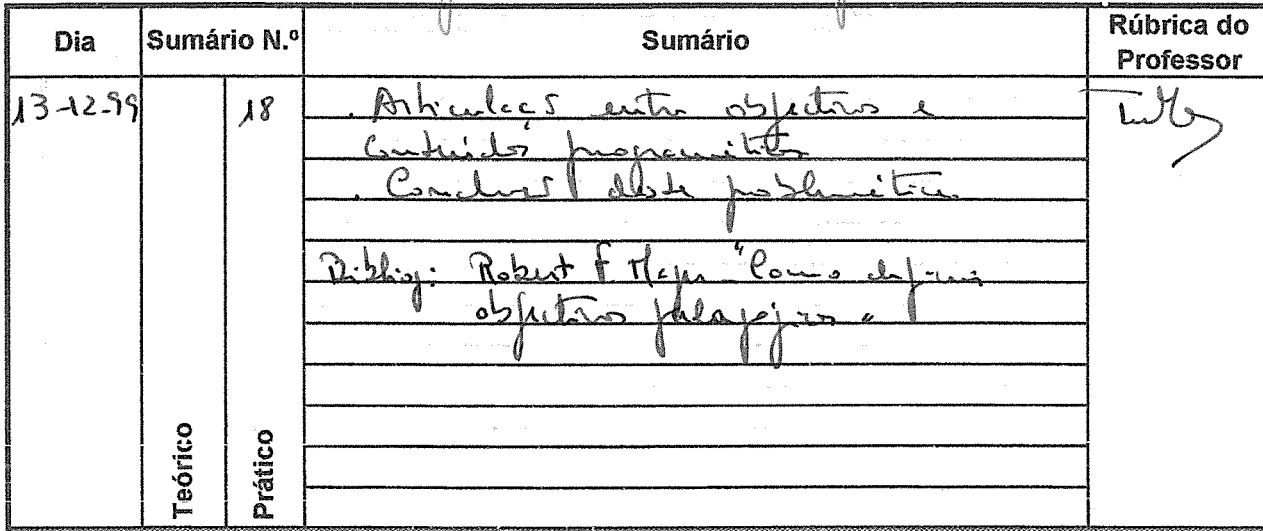 Dia Sumário N.º Sumário Rúbrica do Professor
13-12-99 18 . Articulação entre objectivos e
conteúdos programáticos
. Conclusão desta problemática
Bibliog: Robert F. Mager "Como definir
objectivos pedagógicos"
Teórico Prático